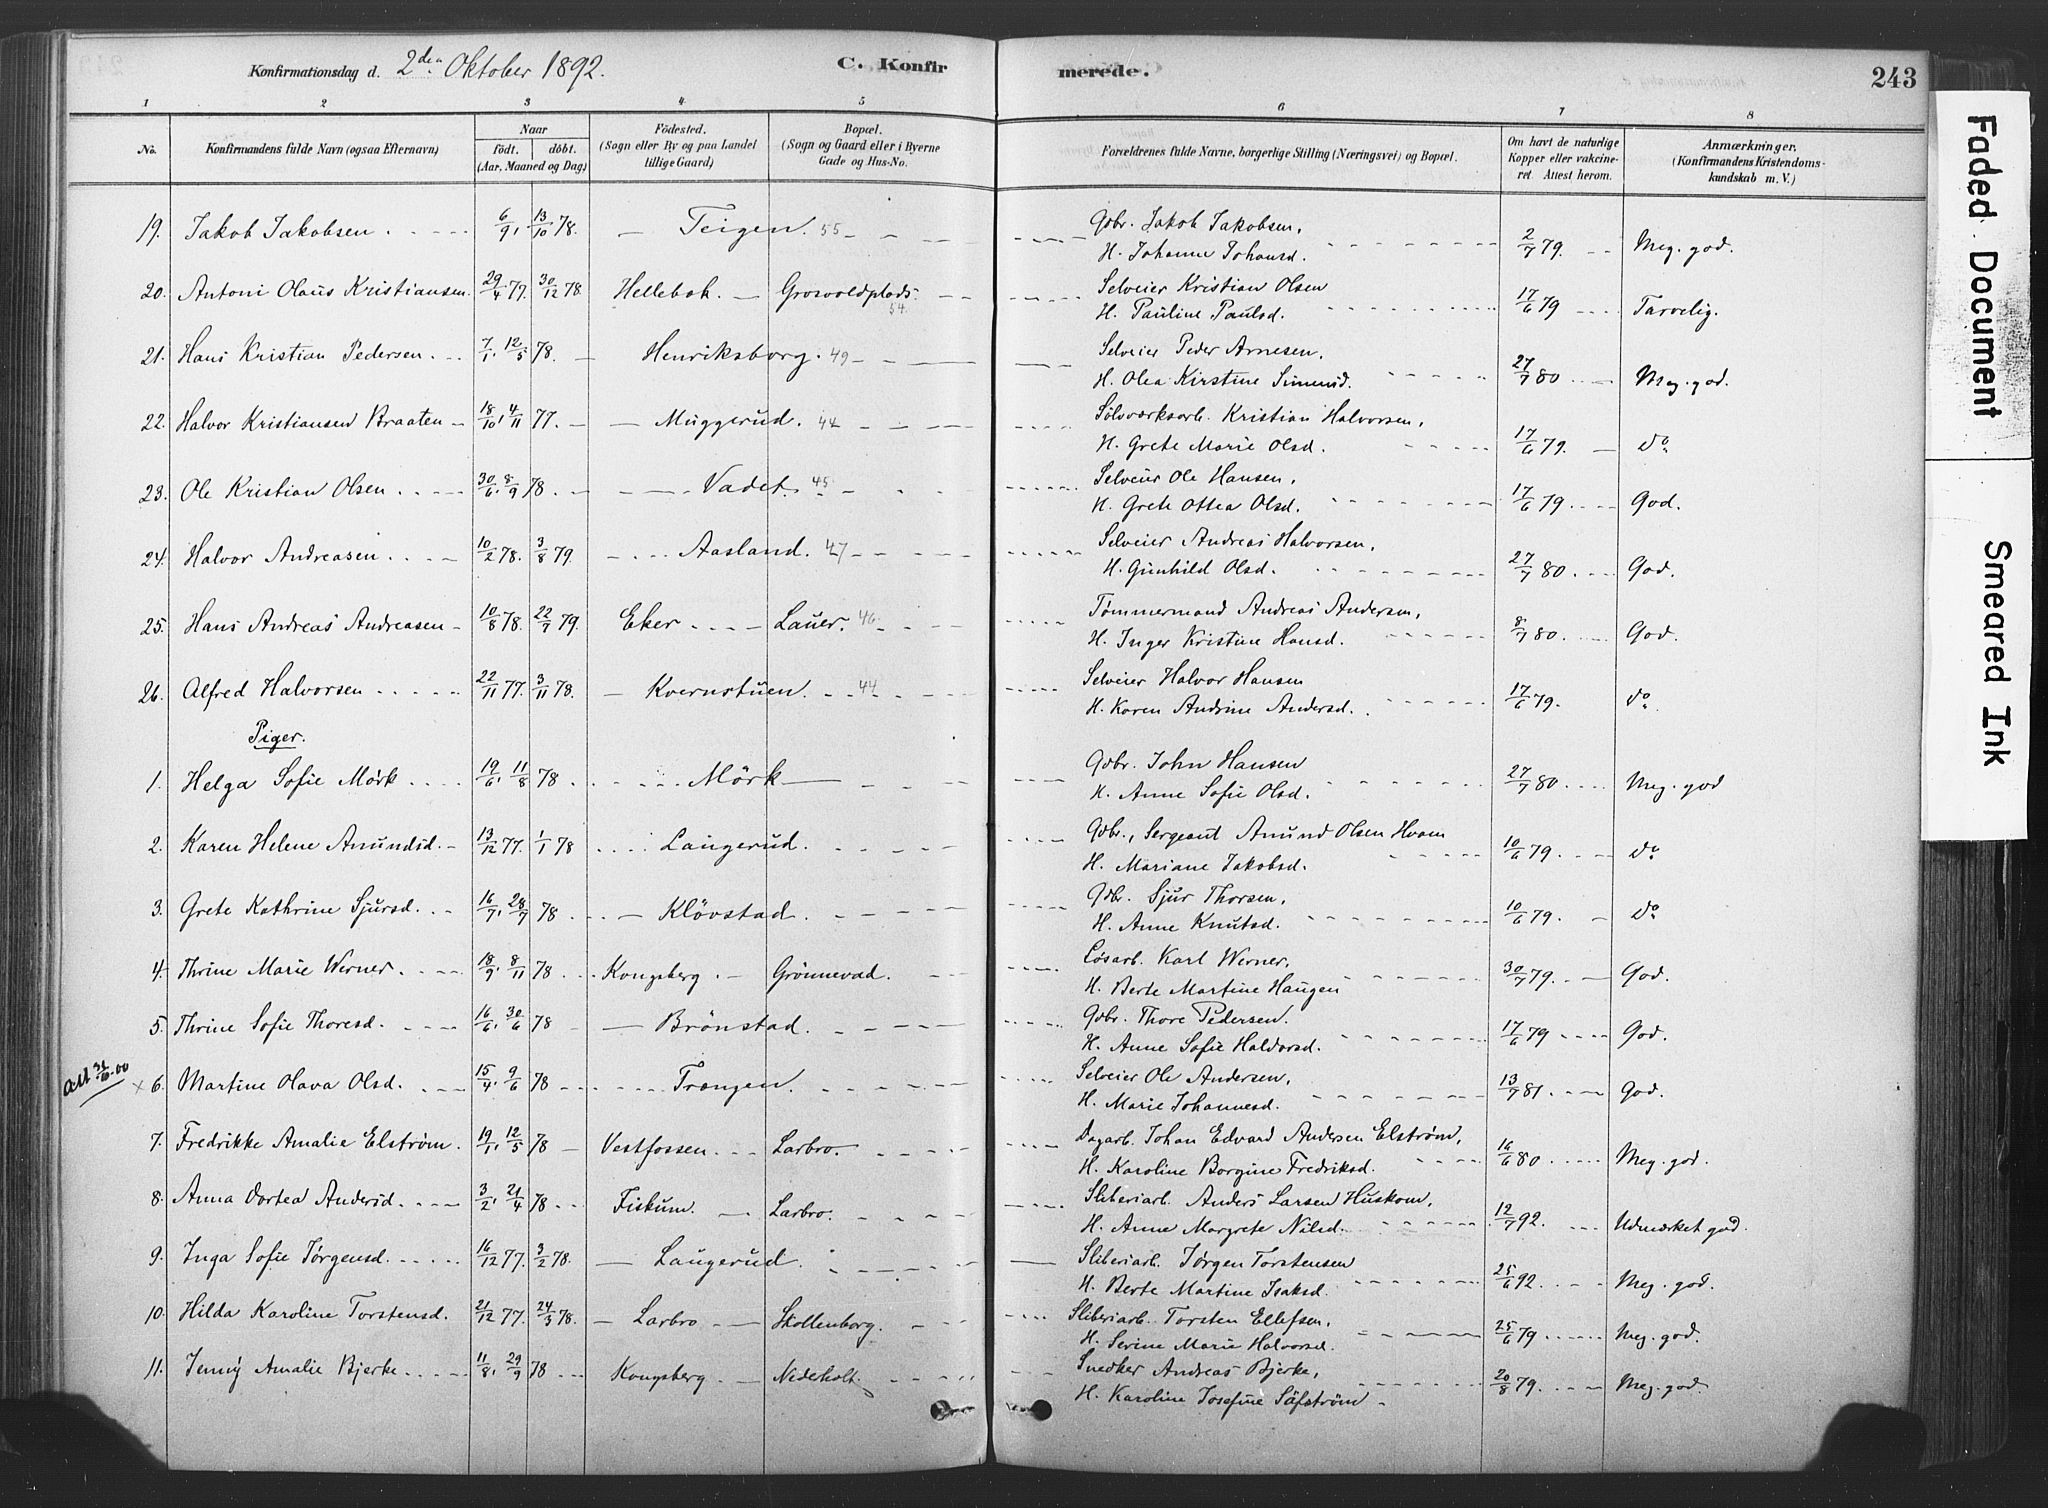 Konfirmationsdag d. 2den Oktober 1892. C. Konfirmerede. 243
1 2 3 4 5 6 7 8
No. Konfirmandens fulde Navn (ogsaa Efternavn) Naar födt. döbt. (Aar, Maaned og Dag) Födested. (Sogn eller By og paa Landet tillige Gaard) Bopæl. (Sogn og Gaard eller i Byerne Gade og Hus-No.) Forældrenes fulde Navne, borgerlige Stilling (Næringsvei) og Bopæl. Om havt de naturlige Kopper eller vakcineret. Attest herom. Anmærkninger. (Konfirmandens Kristendomskundskab m. V.)
19. Jakob Jakobsen. 6/9, 13/10 78. Teigen. 55 Gdbr. Jakob Jakobsen,
H. Johanne Johansd. 2/7 79. Meg. god.
20. Antoni Olaus Kristiansen. 29/4 77. 30/12 78. Hellebæk. Grosvoldplads. 54. Selveier Kristian Olsen
H. Pauline Paulsd. 17/6 79 Tarvelig.
21. Hans Kristian Pedersen. 7/1, 12/5 78. Henriksborg. 49 Selveier Peder Arnesen,
H. Olea Kirstine Simensd. 27/7 80 Meg. god.
22. Halvor Kristiansen Braaten 18/10, 4/11 77. Muggerud. 44 Sølvværksarb. Kristian Halvorsen,
H. Grete Marie Olsd. 17/6 79. do
23. Ole Kristian Olsen. 30/6, 8/9 78 Vadet. 45 Selveier Ole Hansen,
H. Grete Ottea Olsd. 17/6 79. God.
24. Halvor Andreasen. 10/2 78. 3/8 79. Aasland. 47 Selveier Andreas Halvorsen,
H. Gunhild Olsd. 27/7 80. God.
25. Hans Andreas Andreasen 10/8 78. 22/7 79. Eker. Lauer. 46 Tømmermand Andreas Andersen,
H. Inger Kristine Hansd. 8/7 80. God.
26. Alfred Halvorsen 22/11 77. 3/11 78. Kvernstuen. 44 Selveier Halvor Hansen
H. Karen Andrine Andersd. 17/6 79. do
Piger.
1. Helga Sofie Mörk 19/6, 11/8 78 Mörk Gdbr. John Hansen
H. Anne Sofie Olsd. 27/7 80. Meg. god
2. Karen Helene Amundsd. 13/12 77. 1/1 78 Laugerud. Gdbr., Sergeant Amund Olsen Hvam
H. Mariane Jakobsd. 10/6 79. do
3. Grete Kathrine Sjursd. 16/7, 28/7 78 Klövstad. Gdbr. Sjur Thorsen,
H. Anne Knutsd. 10/6 79. do
4. Thrine Marie Werner. 18/9, 8/11 78 Kongsberg. Grönnevad. Løsarb. Karl Werner,
H. Berte Martine Haugen 30/7 79. God.
5. Thrine Sofie Thoresd. 16/6, 30/6 78 Brönstad. Gdbr. Thore Pedersen.
H. Anne Sofie Haldorsd. 17/6 79 God.
Att 00
× 6. Martine Olava Olsd. 15/4, 9/6 78 Trangen. Selveier Ole Andersen,
H. Marie Johannesd. 13/7 81. God.
7. Fredrikke Amalie Elström. 19/1, 12/5 78 Vestfossen. Larbro. Dagarb. Johan Edvard Andersen Elström,
H. Karoline Borgine Fredriksd. 16/6 80. Meg. god.
8. Anna Dortea Andersd. 3/2, 21/4 78 Fiskum. Larbro. Sliberiarb. Anders Larsen Huskom,
H. Anne Margrete Nilsd. 12/7 92. Udmærket god.
9. Inga Sofie Jørgensd. 16/12 77. 3/2 78. Laugerud. Sliberiarb. Jørgen Torstensen
H. Berte Martine Isaksd. 25/6 92. Meg. god.
10. Hilda Karoline Torstensd. 21/12 77. 24/3 78. Larbro Skollenborg. Sliberiarb. Torsten Ellefsen,
H. Serine Marie Halvorsd. 25/6 79. Meg. god.
11. Jenny Amalie Bjerke 11/8, 29/9 78 Kongsberg. Nederholt. Snedker Andreas Bjerke,
H. Karoline Josefine Säfström 20/8 79. Meg. god.
Faded Document
Smeared Ink